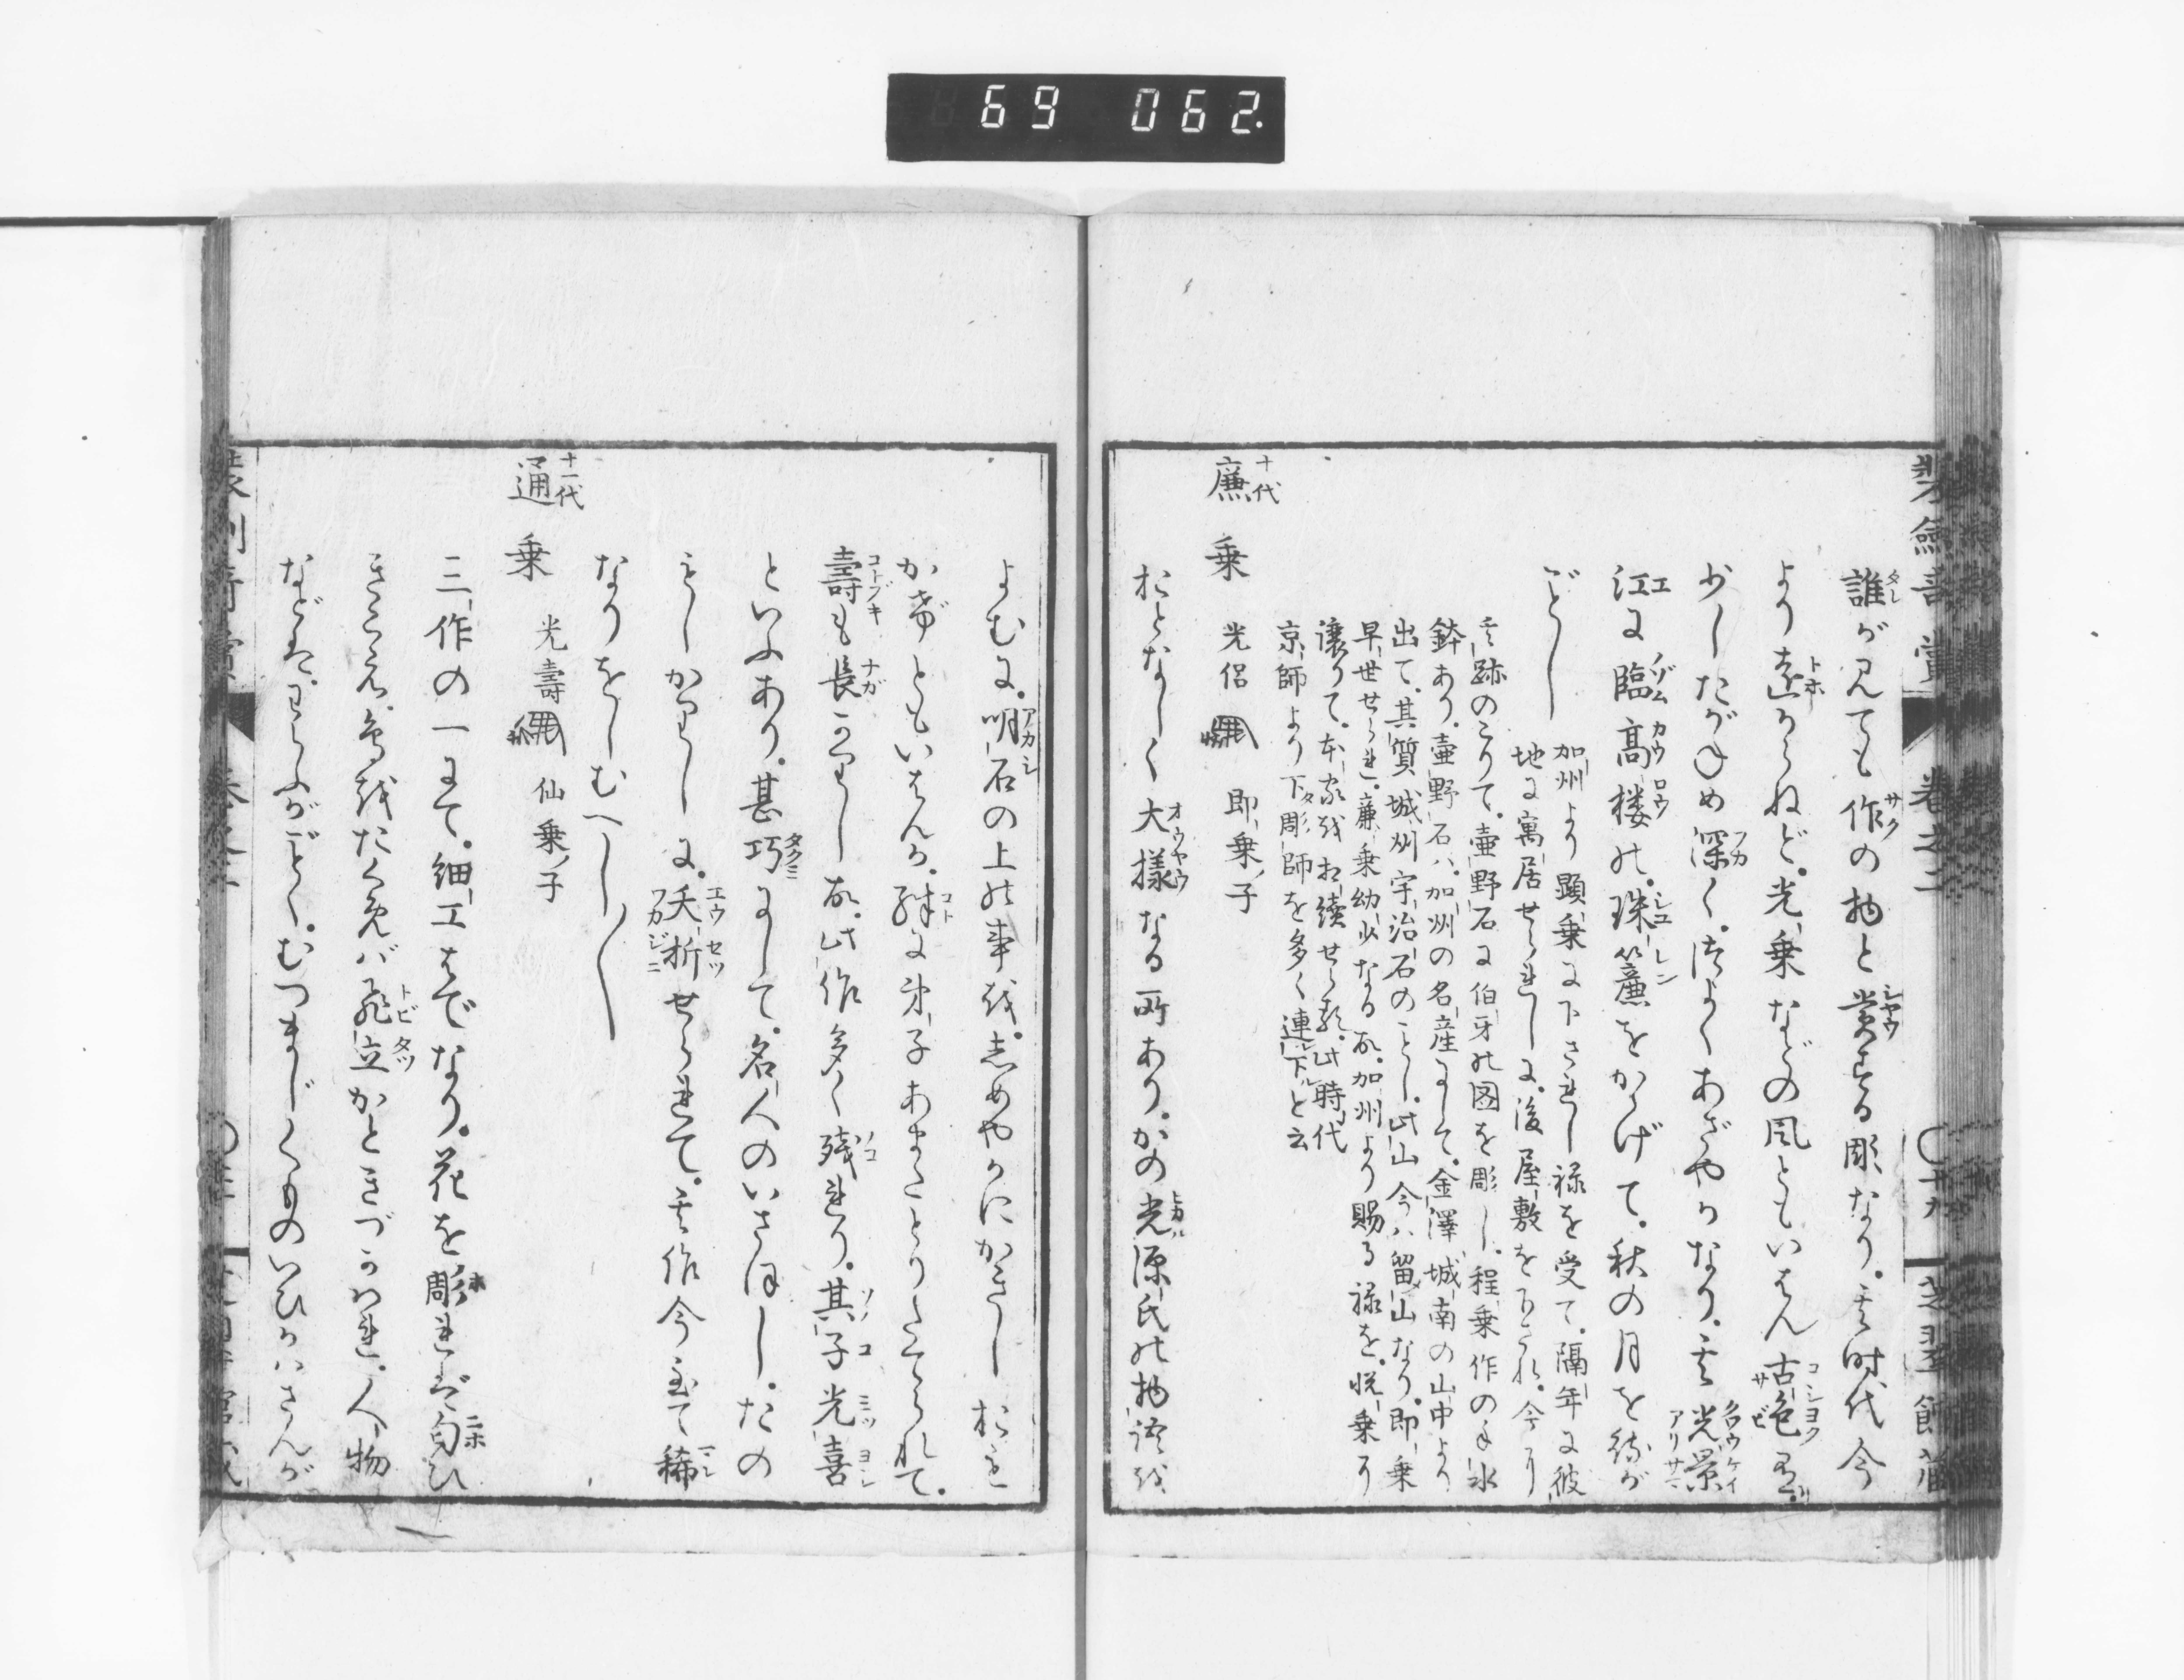 69 062.
装剣奇賞 巻之二 ○十九 芝翠館蔵
誰が見ても作の物と賞する彫なり。其時代今
より遠からねど。光乗などの風ともいはん古色有。
少したがねめ深く。つよくあざやかなり。其光景
江に臨高楼の。珠簾をかゝげて。秋の月を待が
ごとし
加州より顕乗に下されし禄を受て。隔年に彼
地に寓居せられしに。後屋敷を
其跡のこりて。壷野石に伯牙の図を彫し。程乗作の手水
鉢あり。壷野石ハ。加州の名産にして。金澤城南の山中より
出て。其質城州宇治石のことし。此山今ハ留山なり。即乗
早世せられ。廉乗幼少なる故。加州より賜る禄を。悦乗に
譲りて。本家を相續せらる。此時代
京師より下彫師を多く連下ルと云
十代
廉乗 光侶 即乗ノ子
おとなしく大様なる所あり。かの光源氏の物語を
よむに。明石の上の事を。しめやかにかきし おもむ
かぎともいはんか。殊に弟子あまたとりたてられて。
壽も長かりし故。此作多く残れり。其子光喜
といふあり。甚巧にして。名人のいさほし。たの
もしかりしに。夭折せられて。其作今至て稀
なりをしむへし〱
十一代
通乗 光壽 仙乗ノ子
三作の一にて。細工はでなり。花を彫れば匂ひ
きこえ。鳥をたくめバ飛立かときづかはれ。人物
などは。わらふがごとく。むつまじくものいひかハさんが